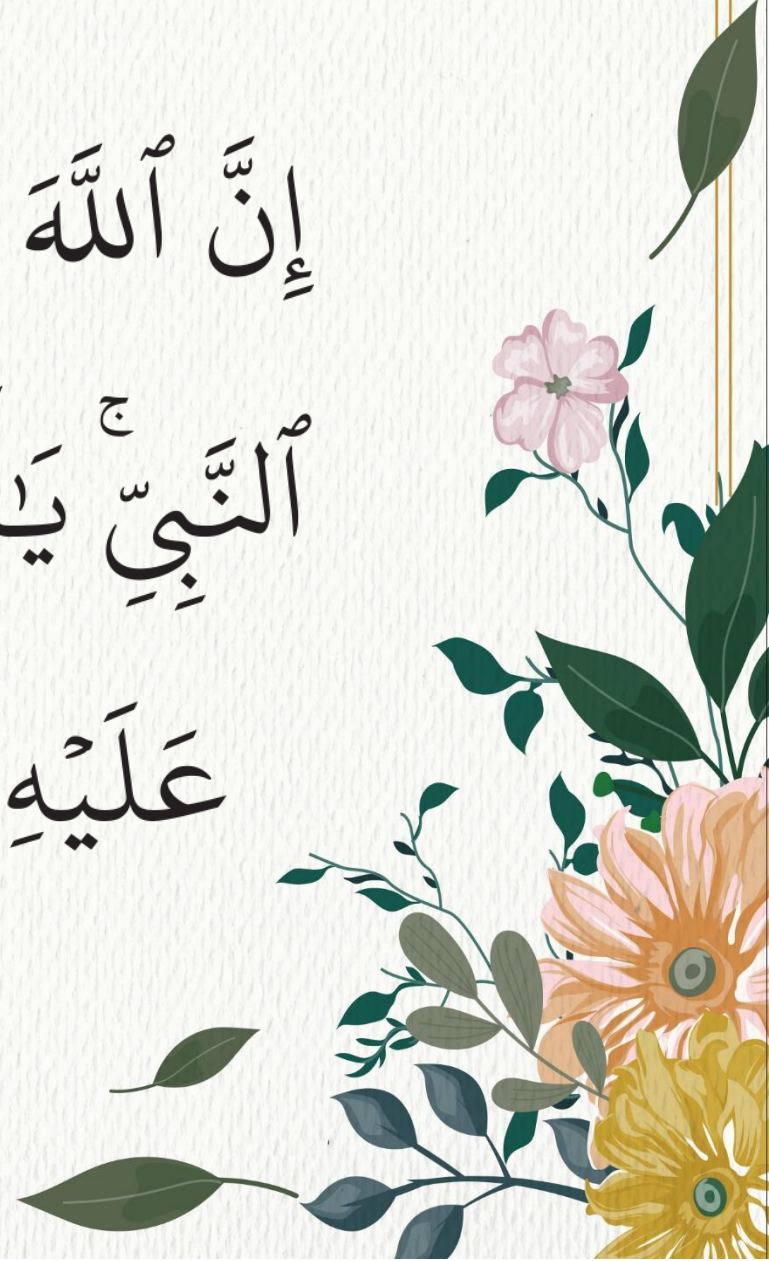 إِنَّ ٱللَّهَ
ٱلنَّبِيِّ ۚ يَـٰ
عَلَيْهِ